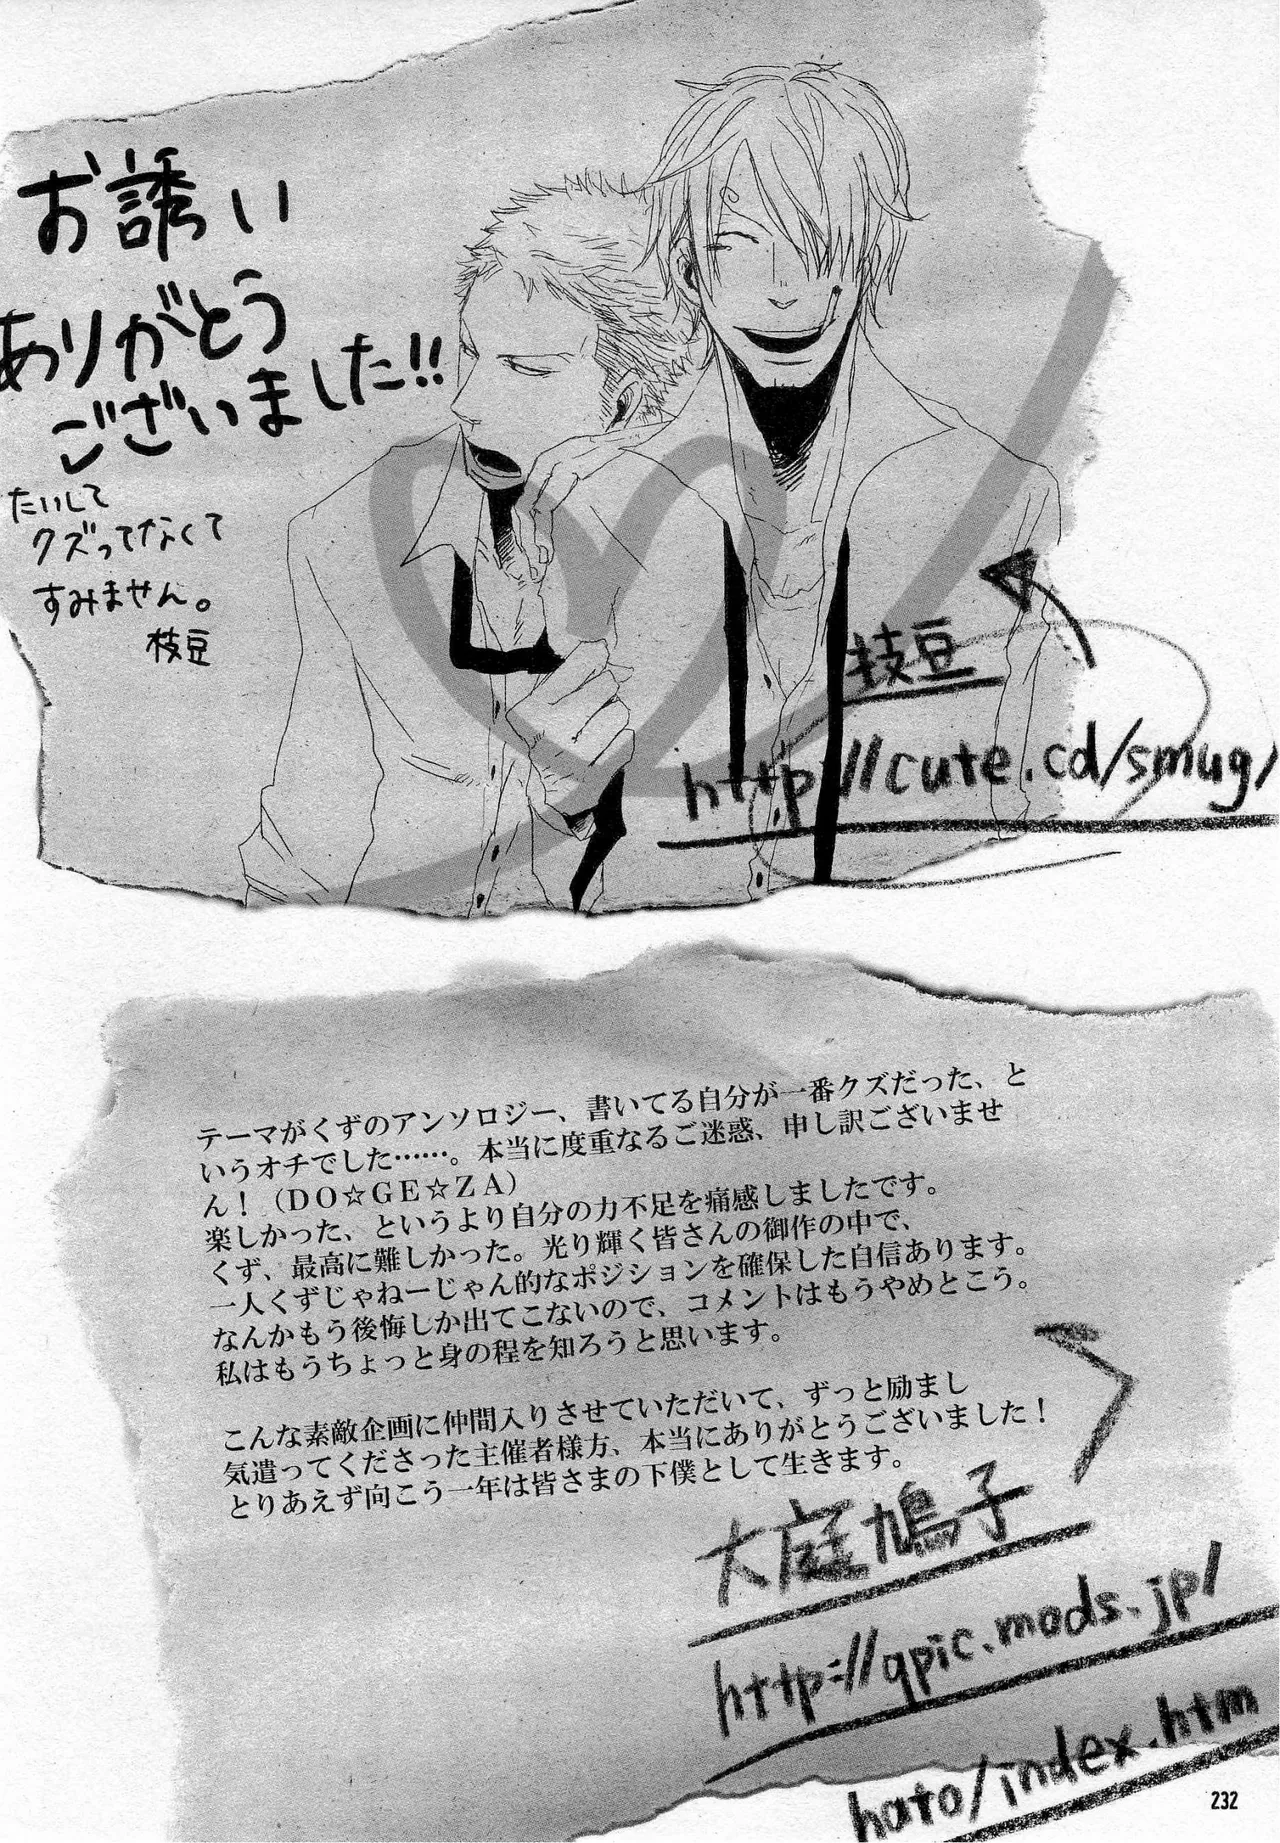 お誘い
ありがとう
ございました!!
たいして
クズってなくて
すみません。
枝豆
枝豆
http://cute.cd/smug/
テーマがくずのアンソロジー、書いてる自分が一番クズだった、と
いうオチでした……。本当に度重なるご迷惑、申し訳ございませ
ん！（DO☆GE☆ZA）
楽しかった、というより自分の力不足を痛感しましたです。
くず、最高に難しかった。光り輝く皆さんの御作の中で、
一人くずじゃねーじゃん的なポジションを確保した自信あります。
なんかもう後悔しか出てこないので、コメントはもうやめとこう。
私はもうちょっと身の程を知ろうと思います。
こんな素敵企画に仲間入りさせていただいて、ずっと励まし
気遣ってくださった主催者様方、本当にありがとうございました！
とりあえず向こう一年は皆さまの下僕として生きます。
大庭鳩子
http://qpic.mods.jp/
hato/index.htm
232